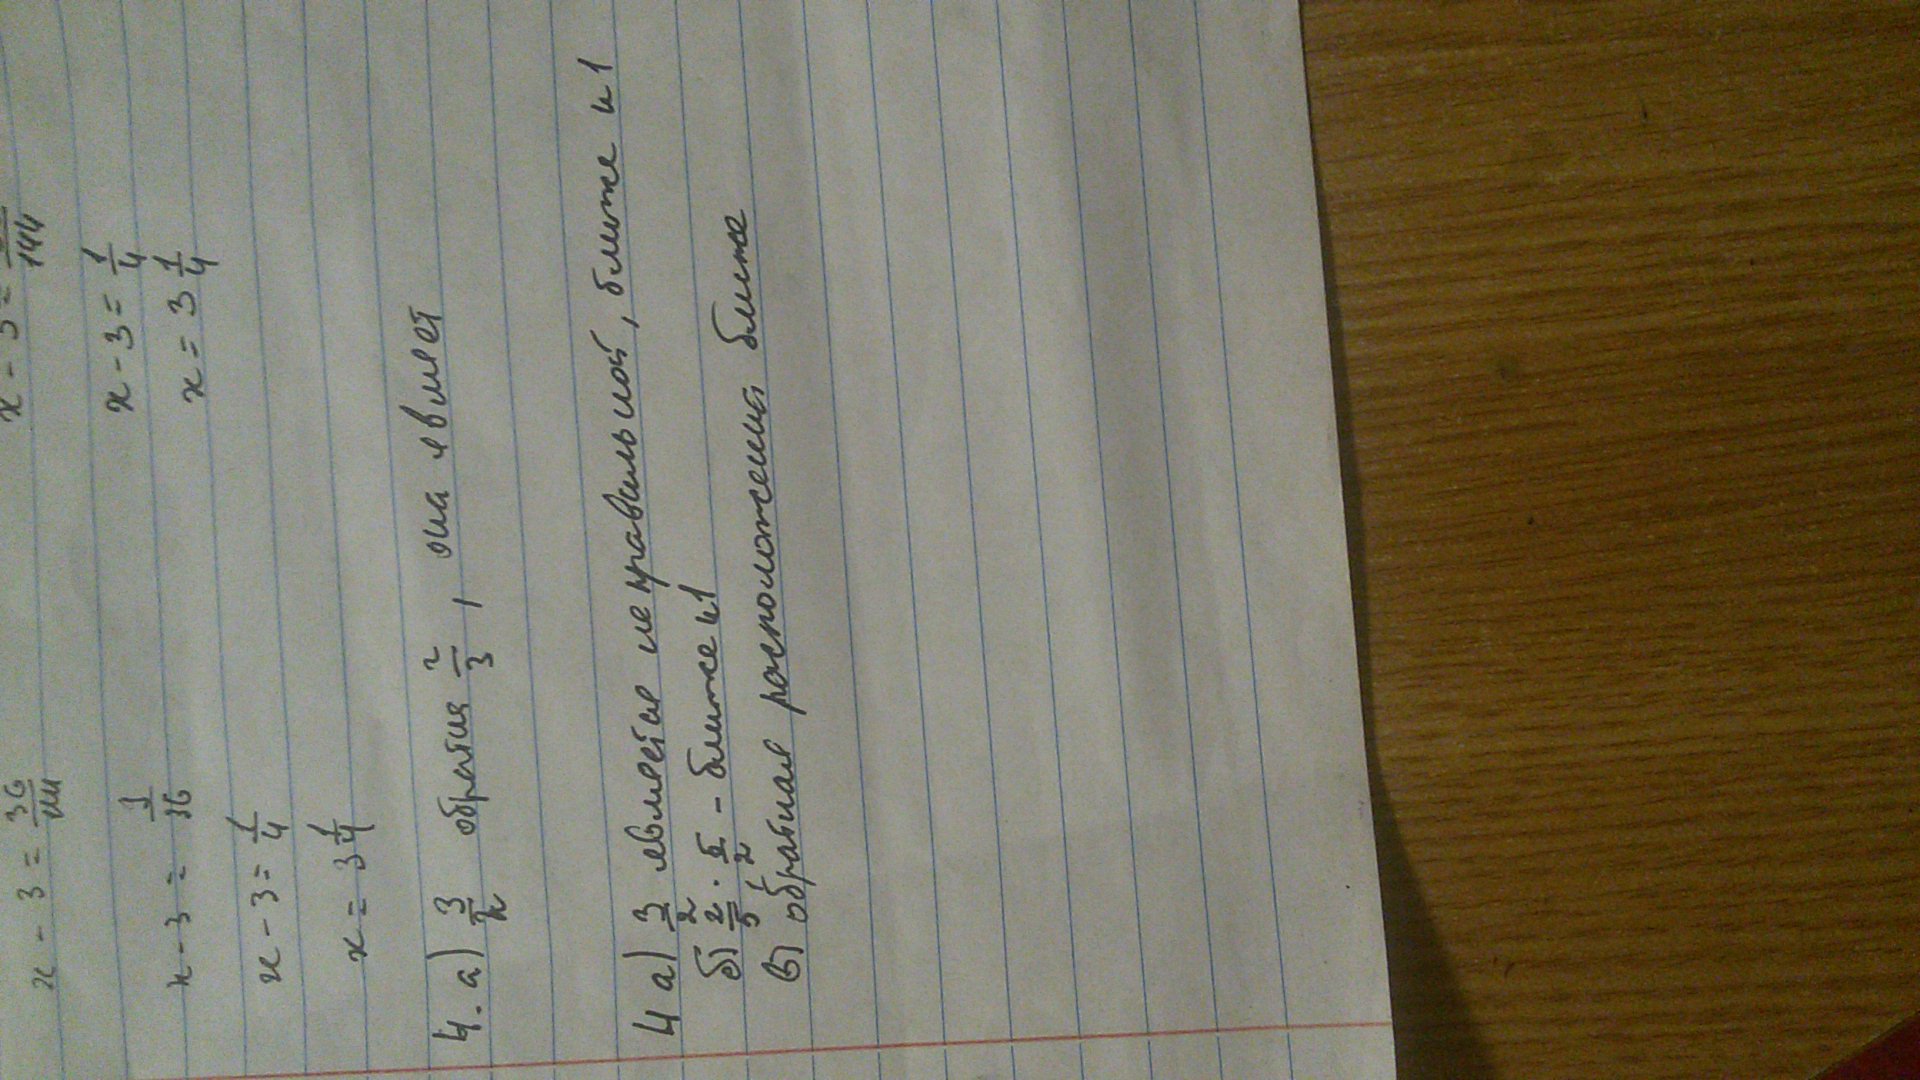 x - 3 = 36/144
x - 3 = /144
x - 3 = 1/36
x - 3 = 1/4
x - 3 = 1/4
x = 3 1/4
x = 3 1/4
4. а) 3/x обратная 2/3, она являет
4 а) 3/2 является не правильной, ближе к 1
б) 2/5 · 5/2 - ближе к 1
в) обратная расположения ближе